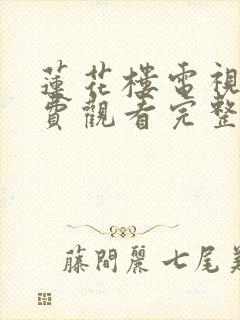 蓮花樓電視
費觀看完整
藤間麗 七尾美